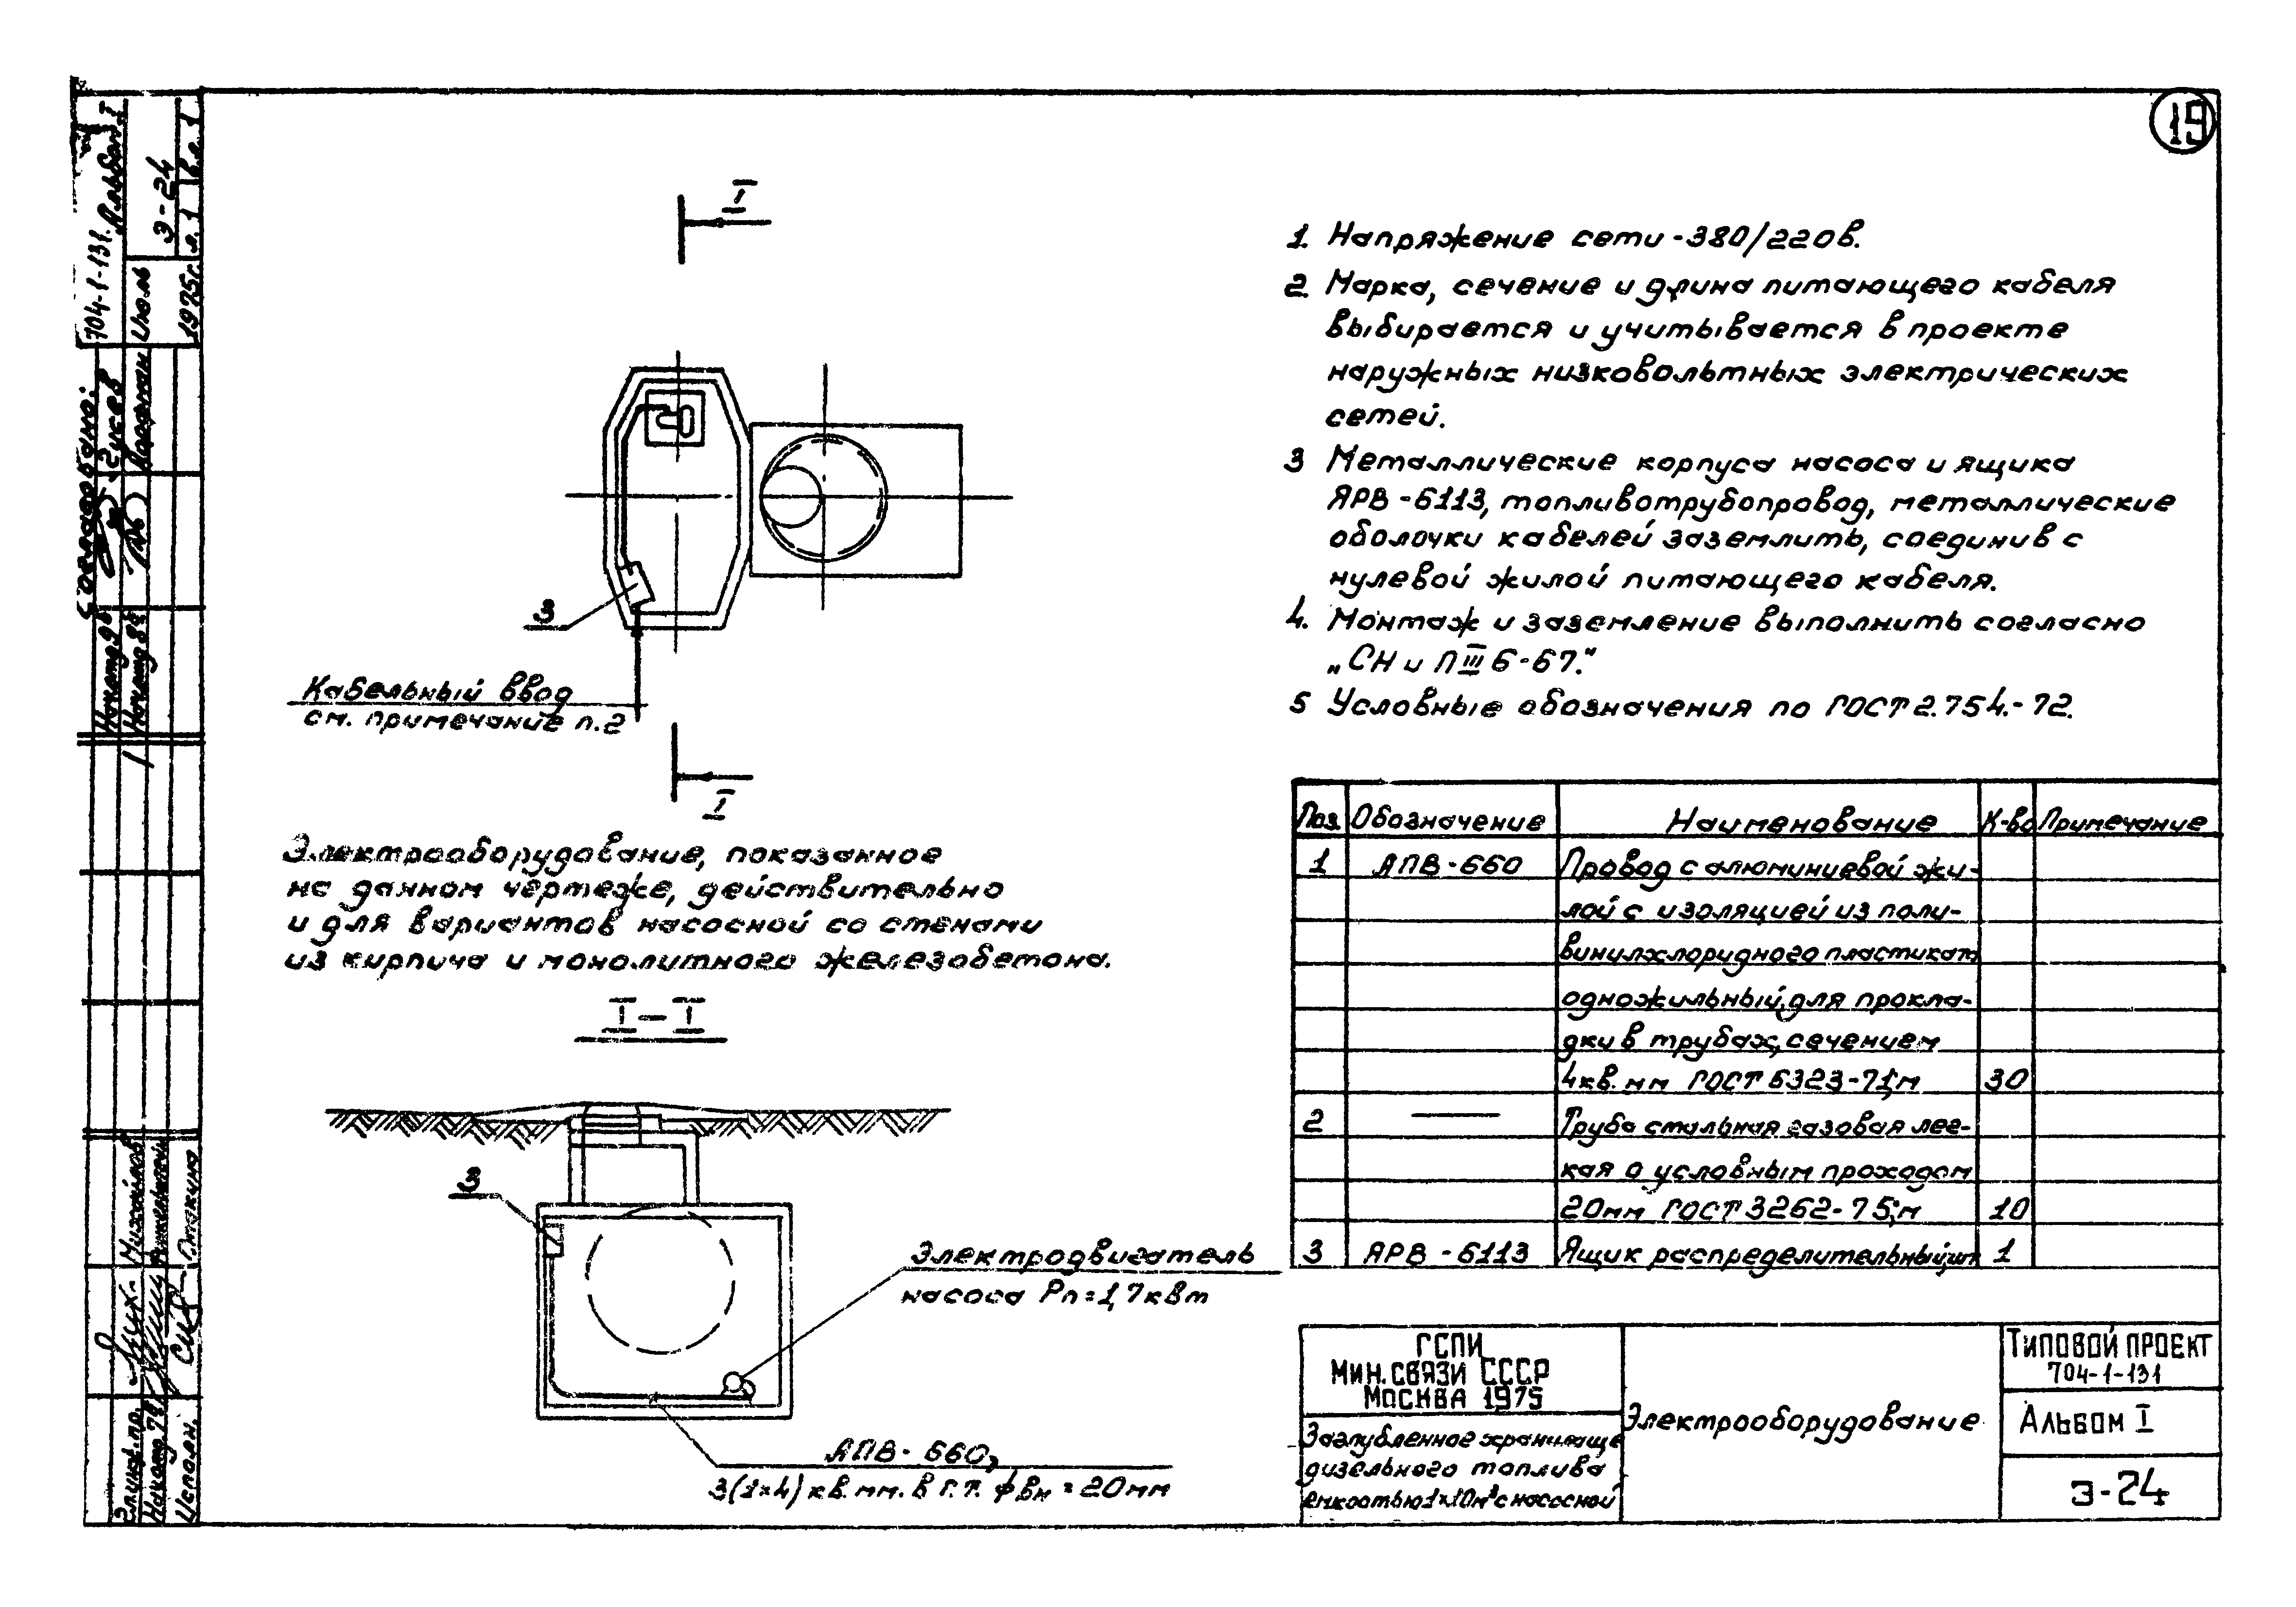 19
I
1. Напряжение сети -380/220в.
2. Марка, сечение и длина питающего кабеля
выбирается и учитывается в проекте
наружных низковольтных электрических
сетей.
3 Металлические корпуса насоса и ящика
ЯРВ-6113, топливотрубопровод, металлические
оболочки кабелей заземлить, соединив с
нулевой жилой питающего кабеля.
4. Монтаж и заземление выполнить согласно
„СН и П III 6-67."
5 Условные обозначения по ГОСТ 2.754.-72.
3
Кабельный ввод
см. примечание п.2
I
Электрооборудование, показанное
на данном чертеже, действительно
и для вариантов насосной со стенами
из кирпича и монолитного железобетона.
I-I
3
Электродвигатель
насоса Рп=1,7квт
АПВ-660,
3(1×4) кв. мм. в г.т. фвн = 20мм
Поз. Обозначение Наименование К-во Примечание
1 АПВ-660 Провод с алюминиевой жи-
лой с изоляцией из поли-
винилхлоридного пластиката
одножильный, для прокла-
дки в трубах, сечением
4кв. мм ГОСТ 6323-71; м 30
2 — Труба стальная газовая лег-
кая с условным проходом
20мм ГОСТ 3262-75; м 10
3 ЯРВ-6113 Ящик распределительный, шт 1
ГСПИ
МИН. СВЯЗИ СССР
МОСКВА 1975
Заглубленное хранилище
дизельного топлива
емкостью 1×10м³ с насосной
Электрооборудование
ТИПОВОЙ ПРОЕКТ
704-1-131
АЛЬБОМ I
Э-24
704-1-131. Альбом I
Э-24
л. 1 в.л. 1
Июль
1975г.
Согласовано:
Гусев
Исполн.
Михайлов